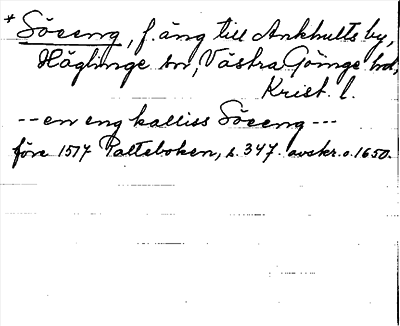 * Söeeng, f. äng till Ankhults by,
Häglinge sn, Västra Göinge hd,
Krist. l.
-- en eng kalliss Söeeng ---
före 1517 Palteboken, s. 347. avskr. o. 1650.